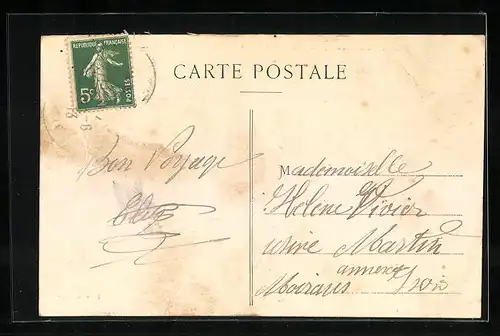 REPUBLIQUE FRANÇAISE
5c
POSTES
CARTE POSTALE
Bon Voyage
Mademoiselle
Hélène Vivier
usine Martin
annexe
Moirans Isère